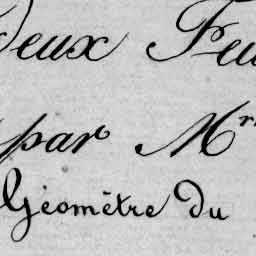 Deux Feu
par Mr
Géomètre du